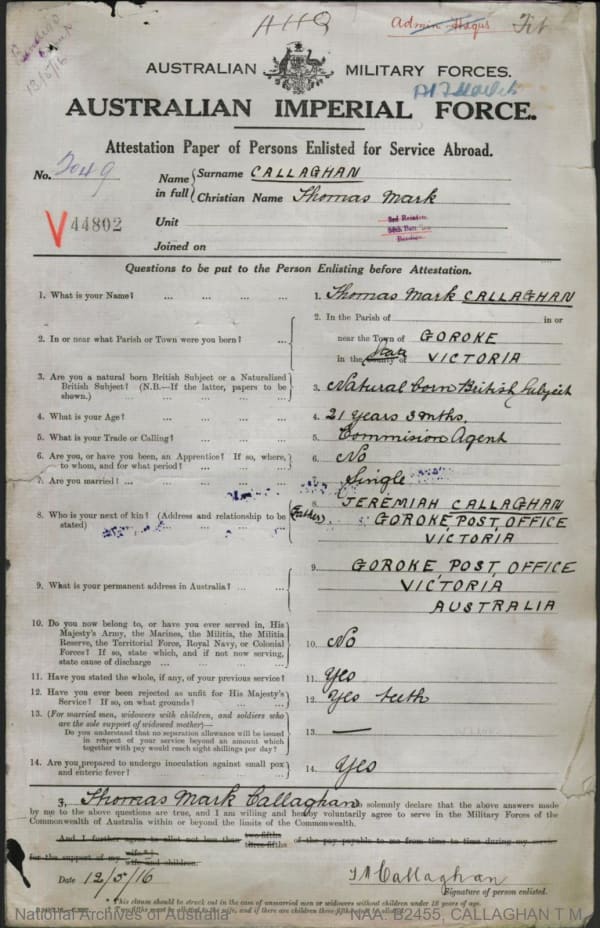 AHQ
Admin Hdqrs Fit
Bendigo
12/5/16
AUSTRALIAN MILITARY FORCES.
AUSTRALIAN IMPERIAL FORCE.
Attestation Paper of Persons Enlisted for Service Abroad.
No. 2049
Name in full { Surname CALLAGHAN
Christian Name Thomas Mark
V 44802
Unit
Joined on
Questions to be put to the Person Enlisting before Attestation.
1. What is your Name? ... ... ... ... 1. Thomas Mark CALLAGHAN
2. In or near what Parish or Town were you born? ... 2. In the Parish of in or
near the Town of GOROKE
in the County of State VICTORIA
3. Are you a natural born British Subject or a Naturalized
British Subject? (N.B.—If the latter, papers to be
shown.) ... 3. Natural born British Subject
4. What is your Age? ... ... ... 4. 21 years 3 mths.
5. What is your Trade or Calling? ... ... ... 5. Commision Agent
6. Are you, or have you been, an Apprentice? If so, where,
to whom, and for what period? ... ... ... 6. No
7. Are you married? ... ... ... Single
8. Who is your next of kin? (Address and relationship to be
stated) ... 8. (Father) JEREMIAH CALLAGHAN
GOROKE POST OFFICE
VICTORIA
9. What is your permanent address in Australia? ... ... 9. GOROKE POST OFFICE
VICTORIA
AUSTRALIA
10. Do you now belong to, or have you ever served in, His
Majesty's Army, the Marines, the Militia, the Militia
Reserve, the Territorial Force, Royal Navy, or Colonial
Forces? If so, state which, and if not now serving,
state cause of discharge ... ... 10. No
11. Have you stated the whole, if any, of your previous service? 11. Yes
12. Have you ever been rejected as unfit for His Majesty's
Service? If so, on what grounds? ... ... 12. Yes teeth
13. (For married men, widowers with children, and soldiers who
are the sole support of widowed mother)—
Do you understand that no separation allowance will be issued
in respect of your service beyond an amount which
together with pay would reach eight shillings per day? 13. —
14. Are you prepared to undergo inoculation against small pox
and enteric fever? ... ... ... 14. Yes
I, Thomas Mark Callaghan do solemnly declare that the above answers made
by me to the above questions are true, and I am willing and hereby voluntarily agree to serve in the Military Forces of the
Commonwealth of Australia within or beyond the limits of the Commonwealth.
And I further agree to allot not less than two-fifths three-fifths of the pay payable to me from time to time during my service
for the support of my wife wife and children.
Date 12/5/16 T M Callaghan
Signature of person enlisted.
* This clause should be struck out in the case of unmarried men or widowers without children under 18 years of age.
† Two fifths must be allotted to the wife, and if there are children three-fifths must be allotted.
National Archives of Australia NAA: B2455, CALLAGHAN T M